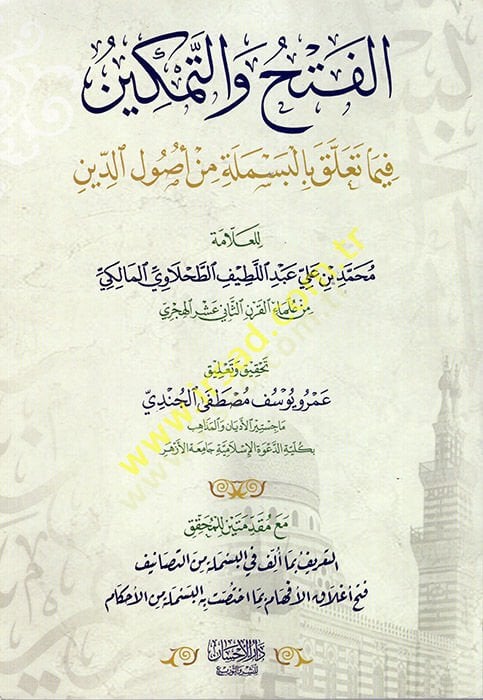 الفَتْحُ وَالتَّمْكِينُ
فِيمَا تَعَلَّقَ بِالْبَسْمَلَةِ مِنْ أُصُولِ الدِّينِ
لِلعَلَّامَة
مُحَمَّد بْنِ عَلِيّ عَبْدِ اللَّطِيفِ الطَّحْلَاوِيِّ المَالِكِيِّ
مِنْ عُلَمَاءِ القَرْنِ الثَّانِي عَشَرَ الهِجْرِي
تَحْقِيق وَتَعْلِيق
عَمْرو يُوسُف مُصْطَفَى الجُنْدِيّ
مَاجِسْتِير الأَدْيَان وَالمَذَاهِب
بِكُلِّيَّةِ الدَّعْوَةِ الإِسْلَامِيَّةِ جَامِعَة الأَزْهَر
مَعَ مُقَدِّمَتَيْنِ لِلْمُحَقِّقِ
التعريف بما ألف في البسملة من التصانيف
فتح أغلاق الأفهام بما اختصت به البسملة من الأحكام
دار الإحسان
للنشر والتوزيع
www.irsad.com.tr